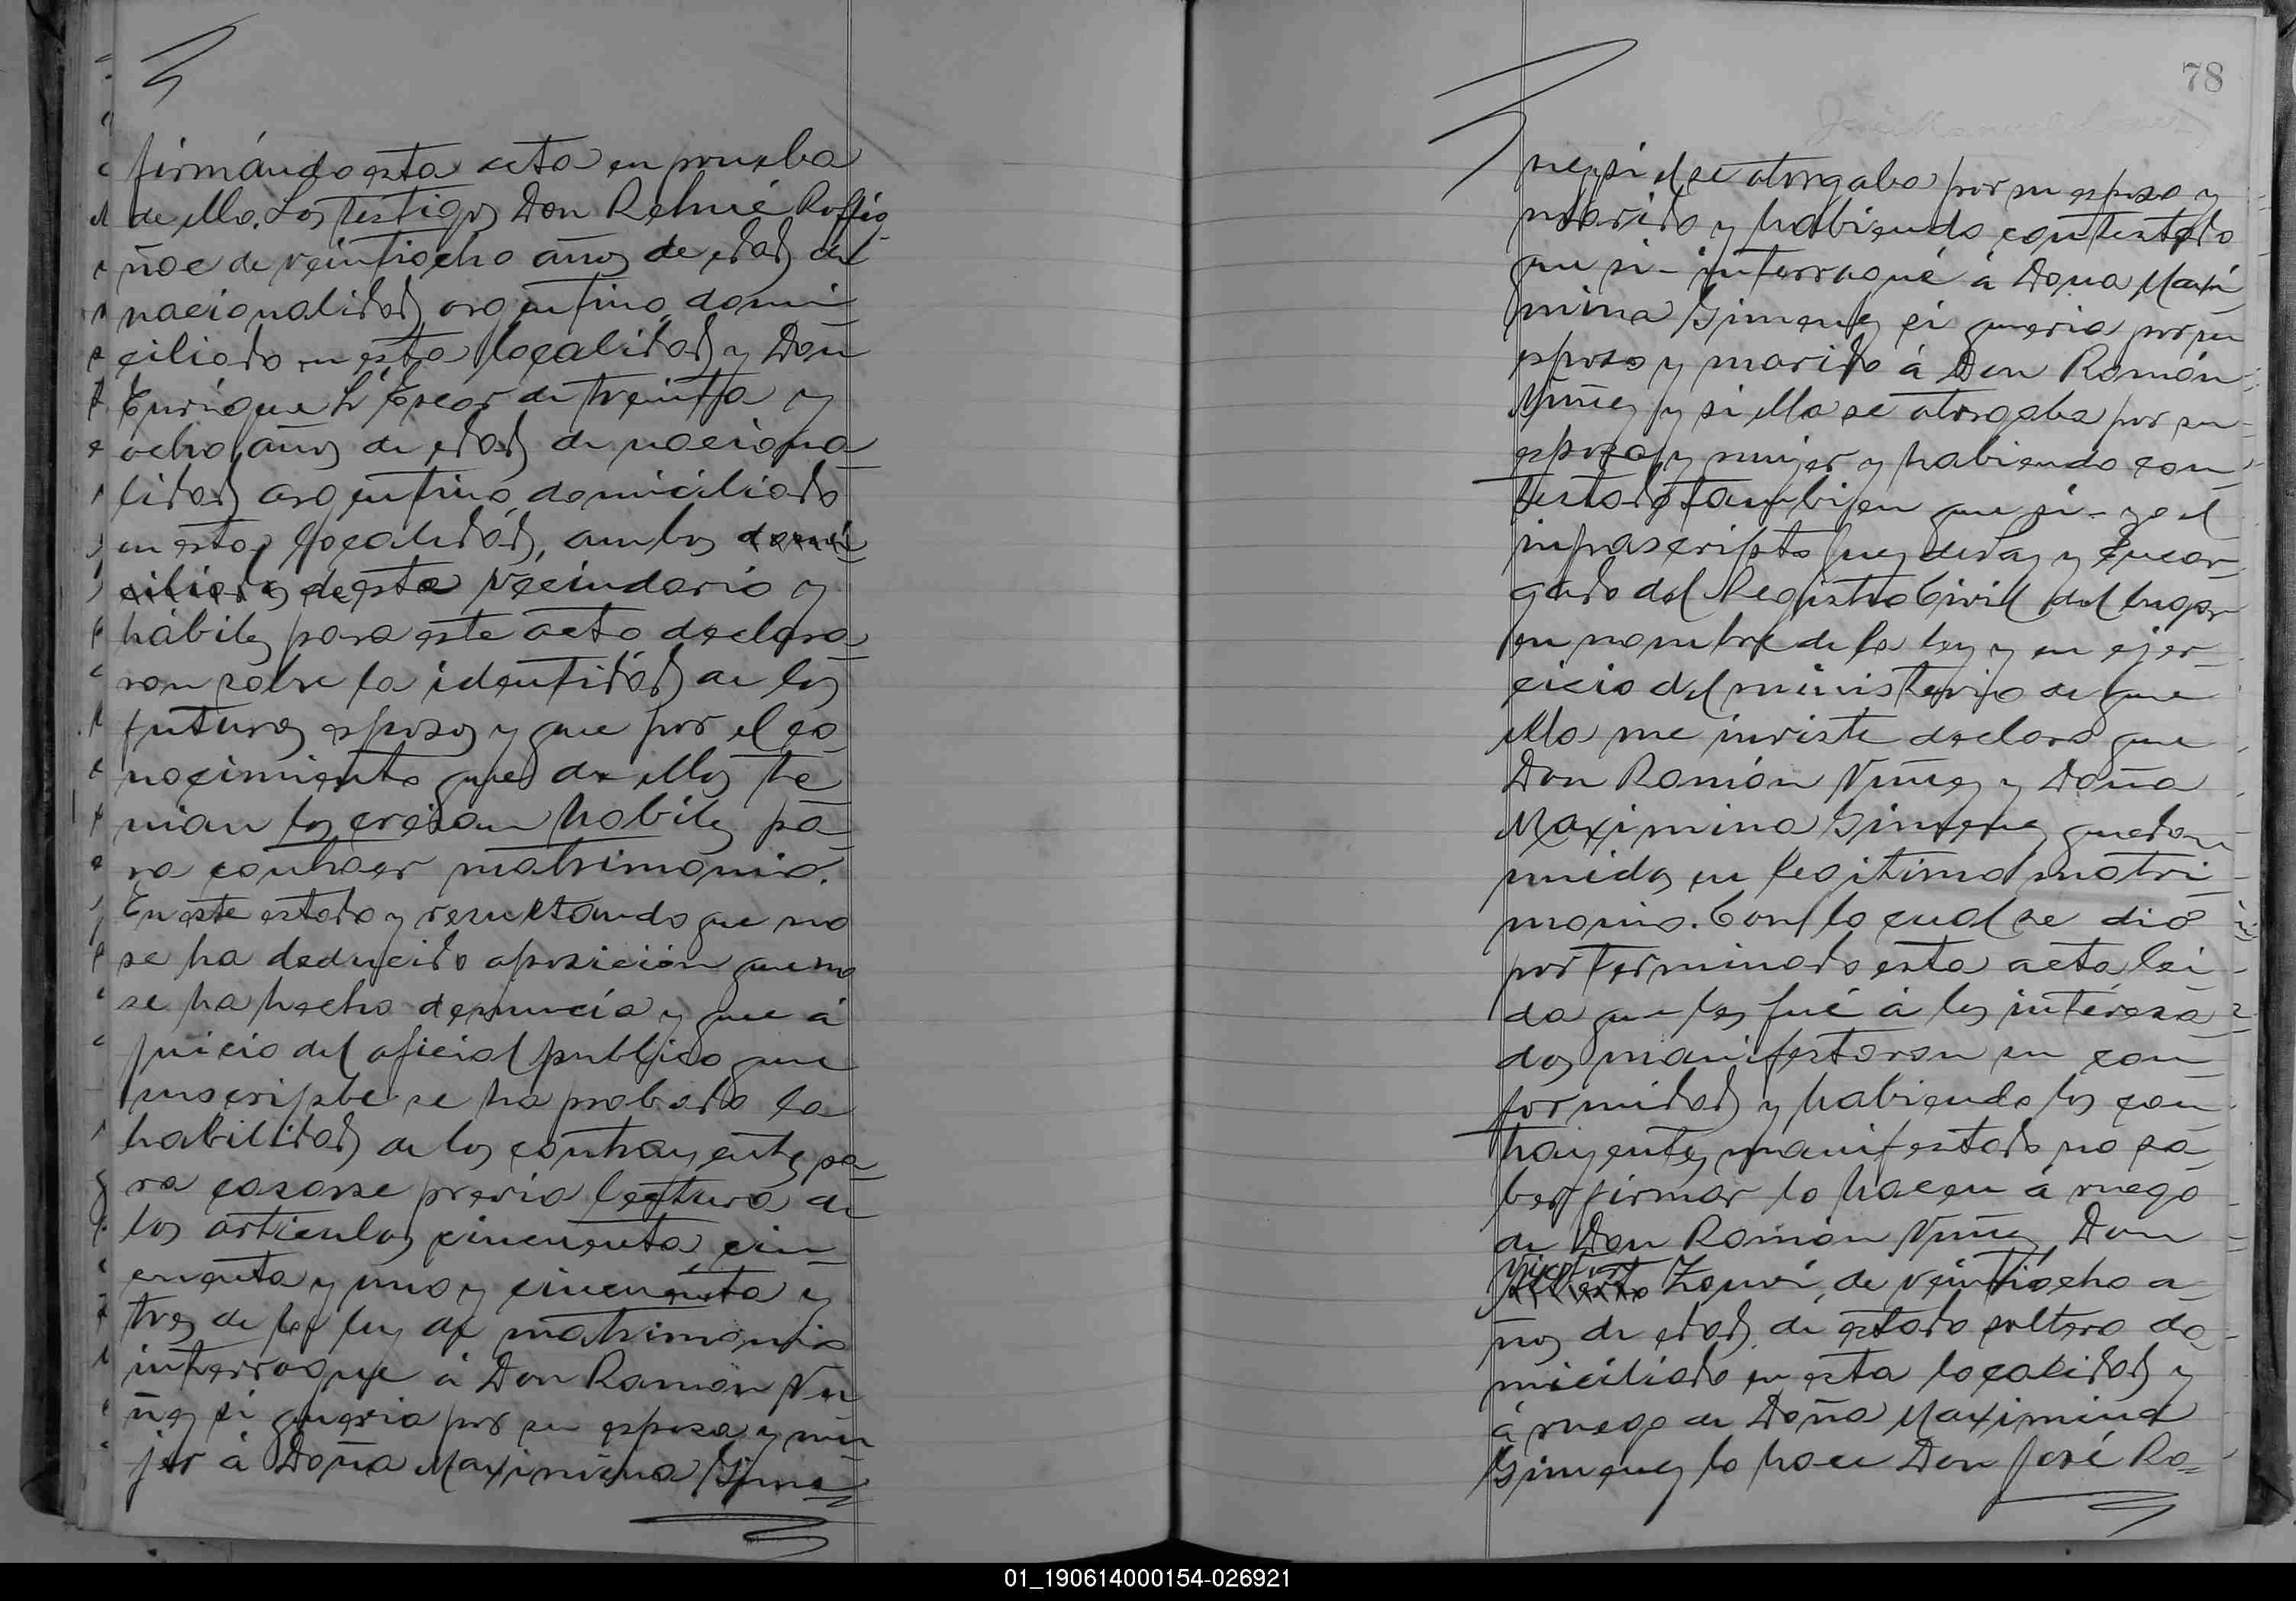 firmándo esta acta en prueba
de ello. Los testigos Don
ñoe de veintiocho años de edad de
nacionalidad argentino domi
ciliado en esta localidad y Don
Enrique de treinta y
ocho años de edad de naciona
lidad argentino domiciliado
en esta localidad, ambos domi
ciliados de esta vecindario y
hábiles para este acto declara
ron sobre la identidad de los
futuros esposos y que por el co
nocimiento que de ellos te
nian los creian habiles pa
ra contraer matrimonio.
En este estado y resultando que no
se ha deducido oposición que no
se ha hecho denuncia y que á
juicio del oficial publico que
suscripbe se ha probado la
habilidad de los contrayentes pa
ra casarse previa lectura de
los articulos cincuenta, cin
cuenta y uno y cincuenta y
tres de la ley de matrimonio
interrogue á Don Ramon Nu
ñes si queria por su esposa y mu
jer á Doña Maximina Gime
78
nes si el se otorgaba por su esposo y
marido y habiendo contestado
que si - interrogué á Doña Maxi
mina Gimenes si queria por su
esposo y marido á Don Ramón
Nuñes y si ella se otorgaba por su
esposa y mujer y habiendo con
testado tambien que si - yo el
infrascripto Juez de Paz y Encar
gado del Registro Civil del lugar
en nombre de la ley y en ejer
cicio del ministerio de que
ella me inviste declaro que
Don Ramón Nuñes y Doña
Maximina Gimenes quedan
unidos en legitimo matri
monio. Con lo cual se dió
por terminado esta acta lei
da que les fué á los interesa
dos manifestaron su con
formidad y habiendo los con
trayentes manifestado no sa
ber firmar lo hacen á ruego
de Don Ramón Nuñes Don
de veintiocho a
ños de edad de estado soltero do
miciliado en esta localidad y
á ruego de Doña Maximina
Gimenes lo hace Don José Ro
01_190614000154-026921